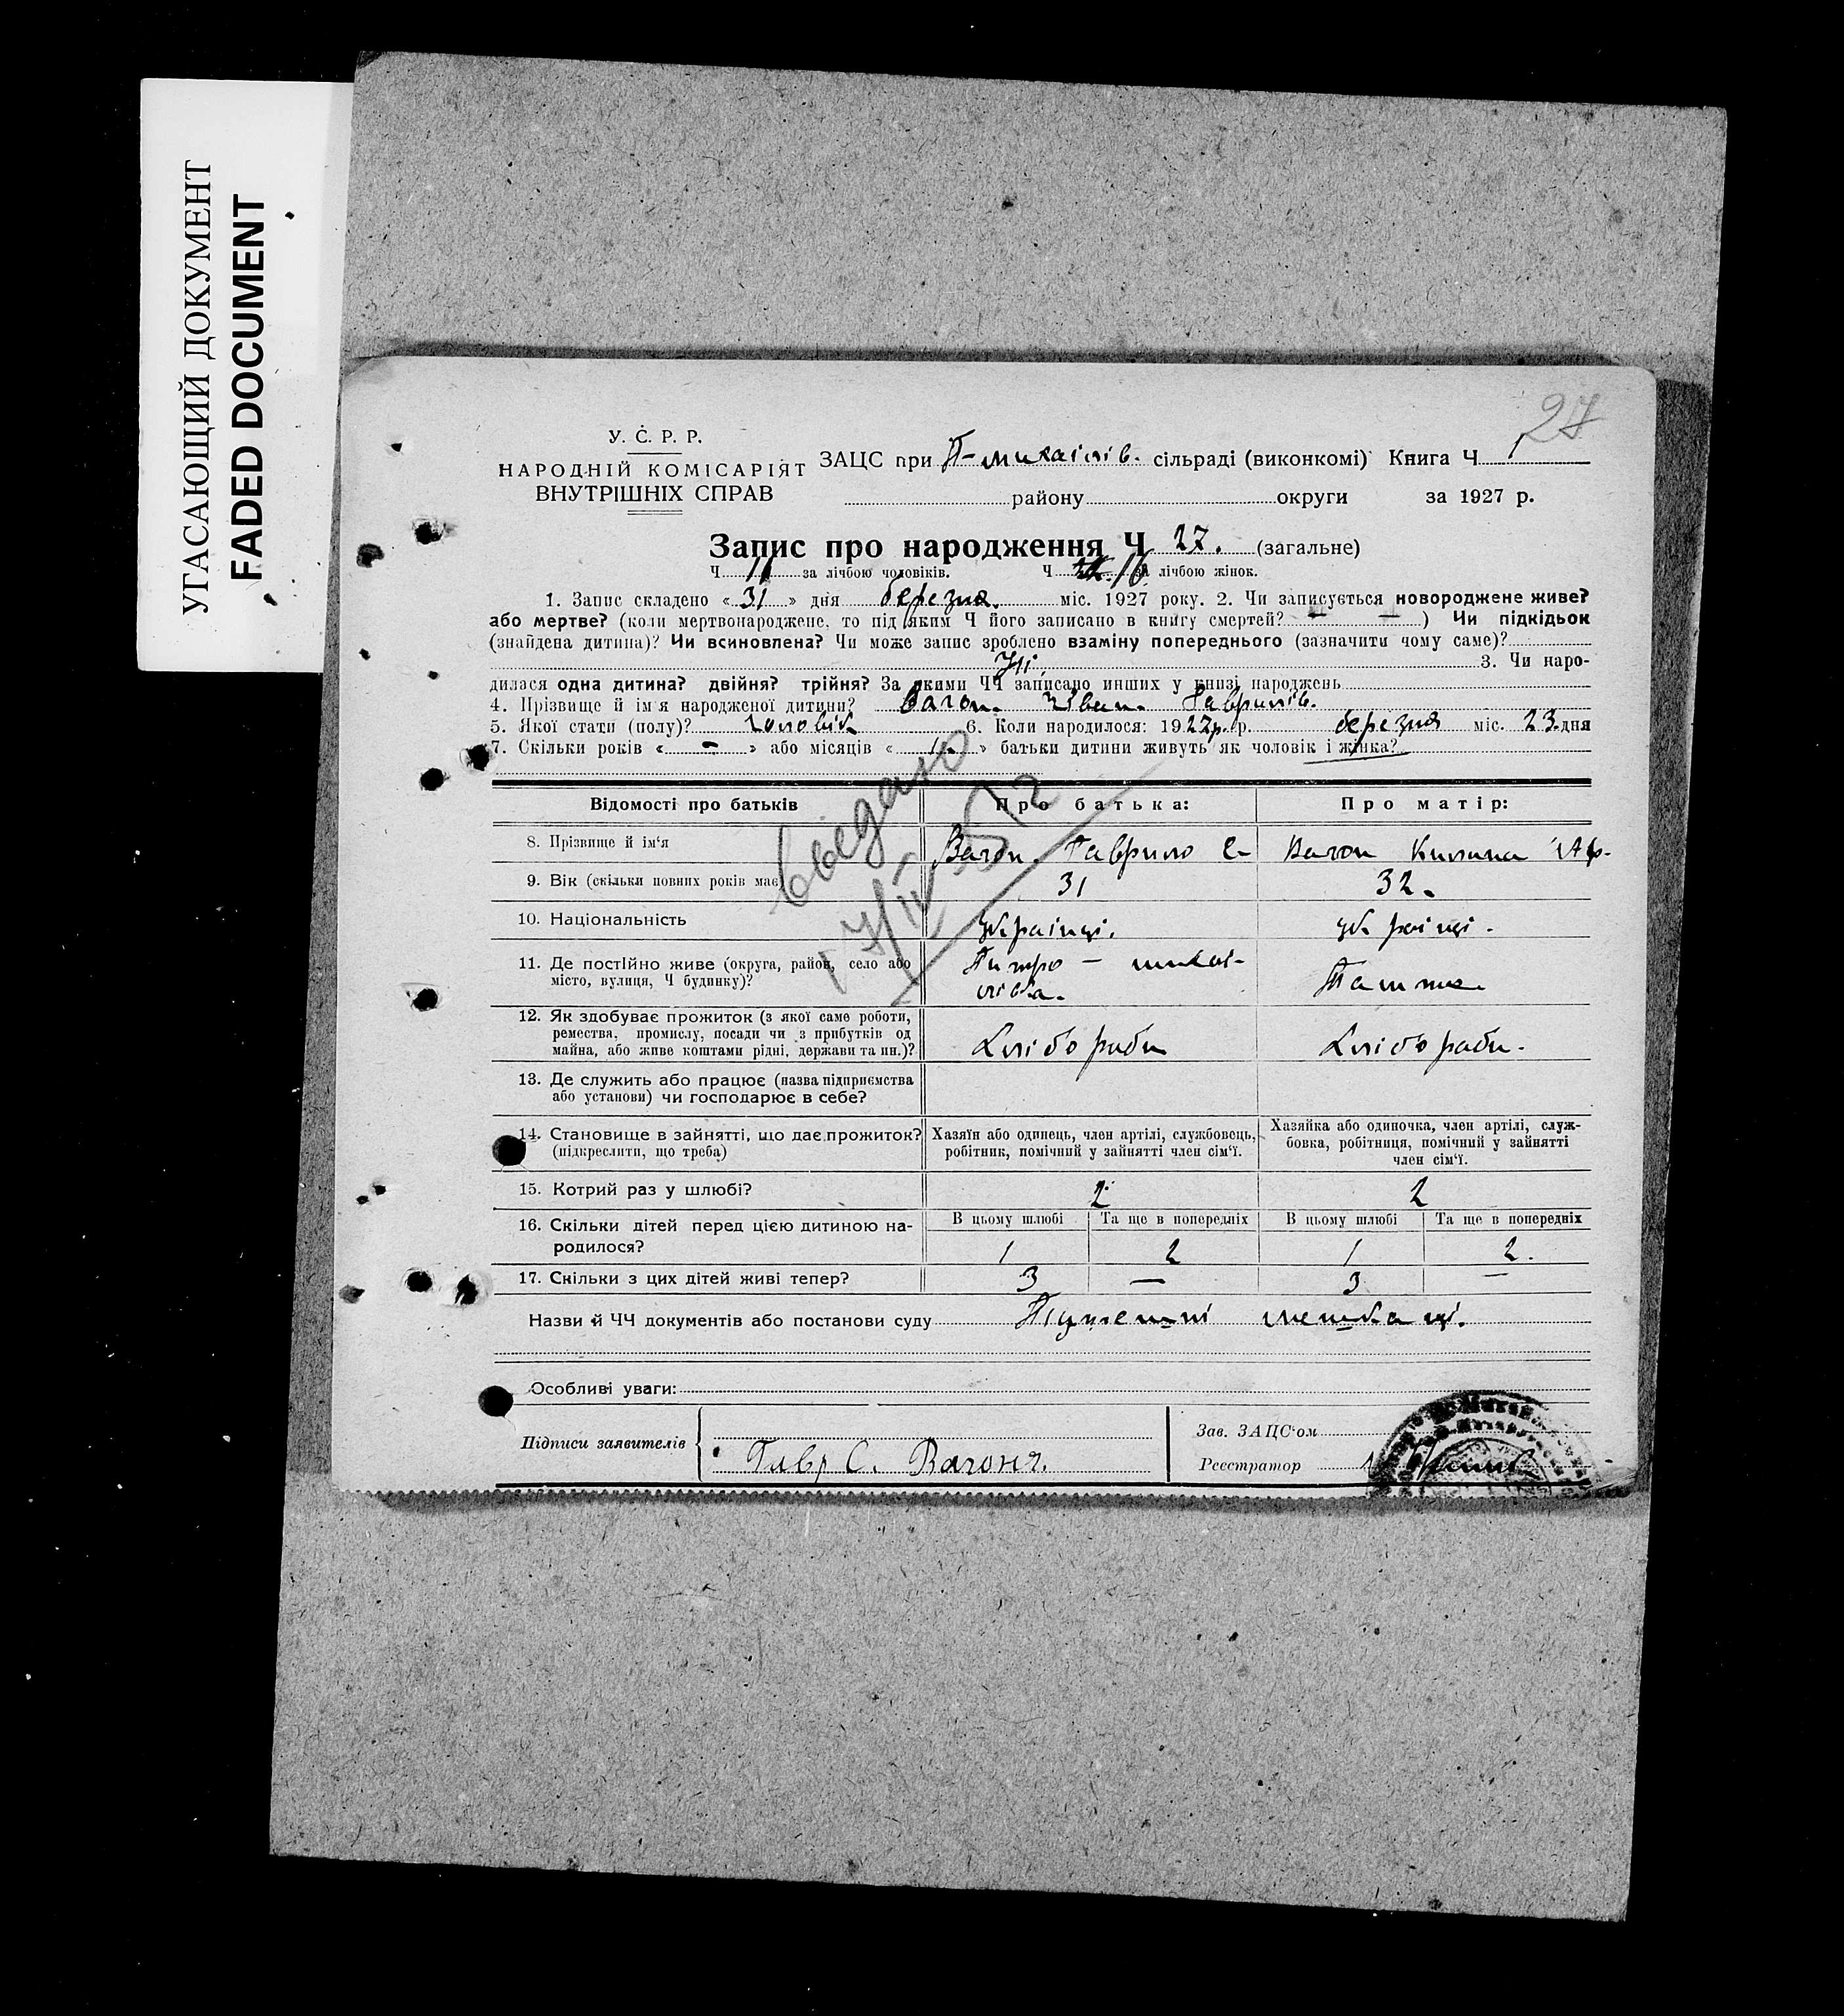 УГАСАЮЩИЙ ДОКУМЕНТ
FADED DOCUMENT
27
У. С. Р. Р.
НАРОДНІЙ КОМІСАРІЯТ
ВНУТРІШНІХ СПРАВ
ЗАЦС при П-михайлів. сільраді (виконкомі) Книга Ч 1
району округи за 1927 р.
Запис про народження Ч 27. (загальне)
Ч 11 за лічбою чоловіків. Ч 16 за лічбою жінок.
1. Запис складено « 31 » дня березня. міс. 1927 року. 2. Чи записується новороджене живе?
або мертве? (коли мертвонароджене, то під яким Ч його записано в книгу смертей? — — ) Чи підкідьок
(знайдена дитина)? Чи всиновлена? Чи може запис зроблено взаміну попереднього (зазначити чому саме)?
3. Чи наро-
дилася одна дитина? двійня? трійня? За якими ЧЧ записано инших у книзі народжень
4. Прізвище й ім'я народженої дитини? Вагон. Іван. Гаврилів.
5. Якої стати (полу)? чоловік 6. Коли народилося: 1927р. р. березня міс. 23. дня
7. Скільки років « - » або місяців « » батьки дитини живуть як чоловік і жінка?
Відомості про батьків Про батька: Про матір:
8. Прізвище й ім'я Вагон. Гаврило С- Вагон Килина
9. Вік (скільки повних років має) 31 32.
10. Національність українці. українці.
11. Де постійно живе (округа, район, село або
місто, вулиця, Ч будинку)? Питро - михаі-
лівка. Татже
12. Як здобуває прожиток (з якої саме роботи,
ремества, промислу, посади чи з прибутків од
майна, або живе коштами рідні, держави та ин.)? Хліборобн Хліборобн.
13. Де служить або працює (назва підприємства
або установи) чи господарює в себе?
14. Становище в зайнятті, що дає прожиток?
(підкреслити, що треба)
Хазяїн або одинець, член артілі, службовець,
робітник, помічний у зайнятті член сім'ї.
Хазяйка або одиночка, член артілі, служ-
бовка, робітниця, помічний у зайнятті
член сім'ї.
15. Котрий раз у шлюбі? 2 2
16. Скільки дітей перед цією дитиною на-
родилося?
В цьому шлюбі Та ще в попередніх В цьому шлюбі Та ще в попередніх
1 2 1 2.
17. Скільки з цих дітей живі тепер? 3 — 3 —
Назви й ЧЧ документів або постанови суду мешканці.
Особливі уваги:
Підписи заявителів Гавр С. Вагоня.
Зав. ЗАЦС'ом
Реєстратор